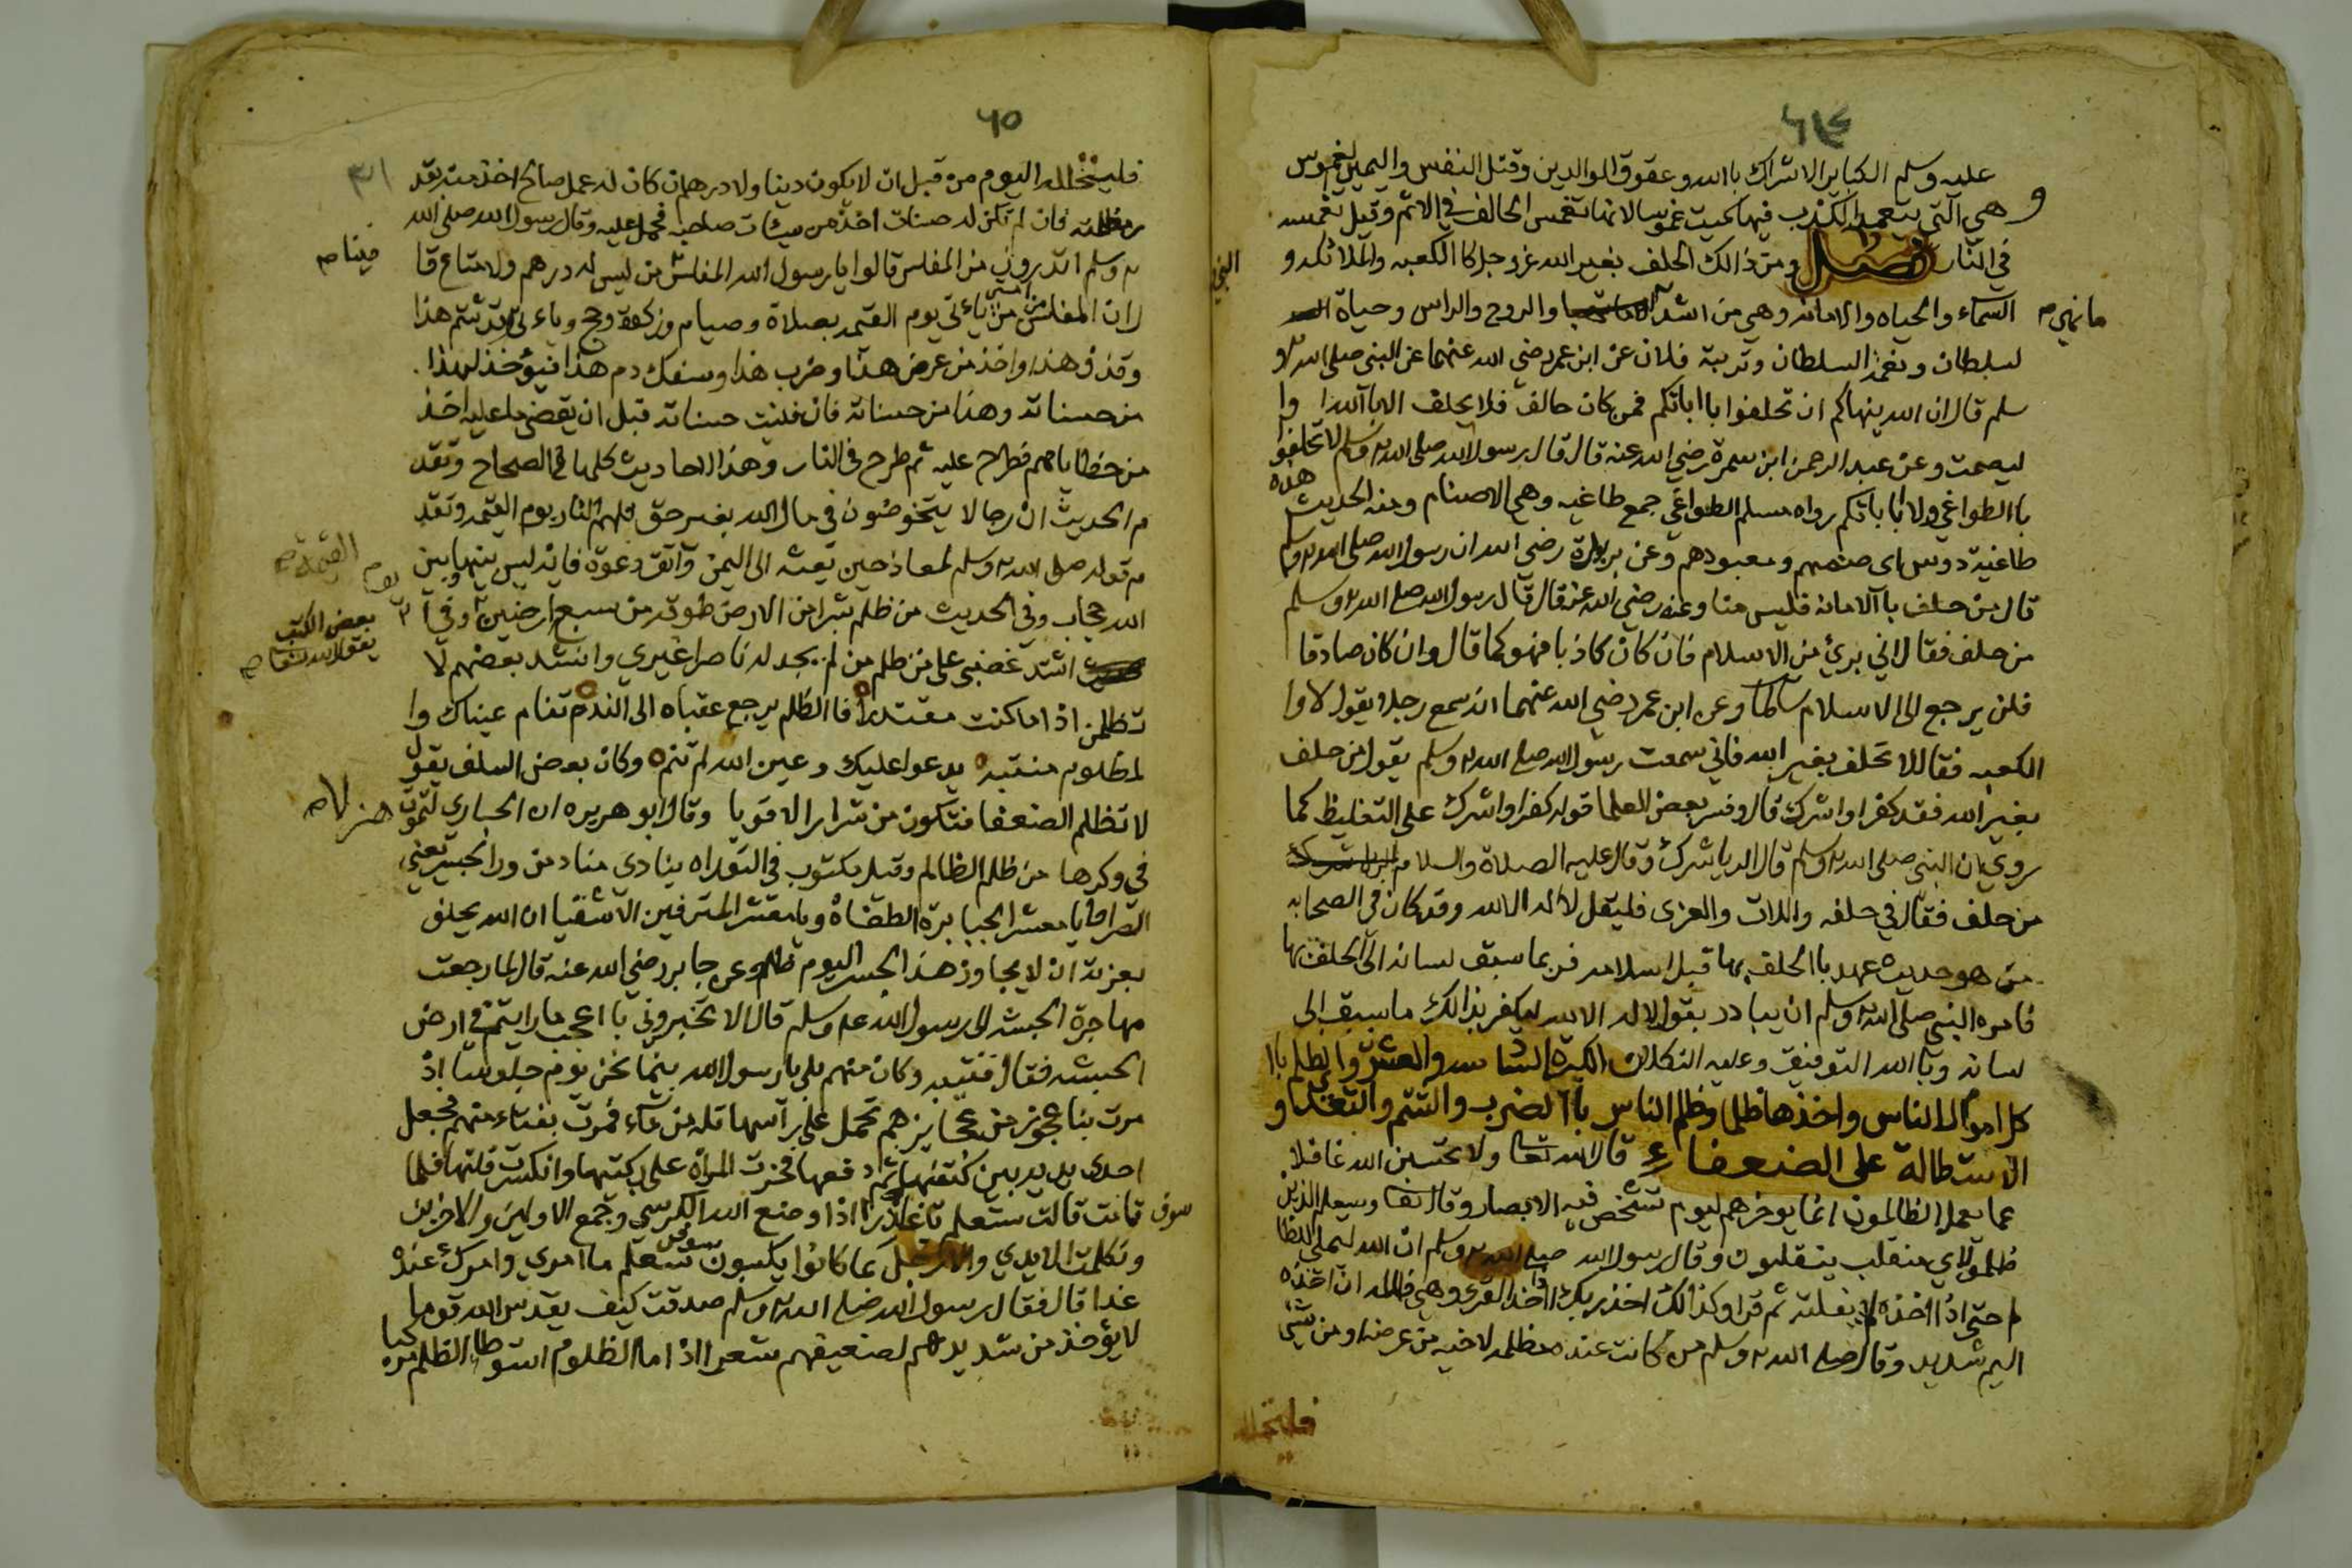 ٦٤
عليه وسلم الكباير الاشراك باالله وعقوق الوالدين وقتل النفس واليمين لغموس
و هي التي يتعمد الكذب فيها سميت غموسا لانها تغمس الحالف في الاثم وقيل تغمسه
في النار فصل ومن ذالك الحلف بغير الله عزوجل كا الكعبه والملائكه و النبي
السماء والحياه والامانه وهي من اشد ما نهي والروح والراس وحياة
لسلطان ونعمة السلطان وتربة فلان عن ابن عمر رضي الله عنهما عن النبي صلى الله عليه و
سلم قال ان الله ينهاكم ان تحلفوا باابائكم فمن كان حالف فلا يحلف الا باالله ا وا
ليصمت وعن عبد الرحمن ابن سمرة رضي الله عنه قال قال رسول الله صلى الله عليه وسلم لا تحلفوا
باالطواغي ولا باباتكم رواه مسلم الطواغي جمع طاغيه وهي الاصنام ومنه الحديث هذه
طاغية دوس اى صنمهم ومعبودهم وعن بريدة رضي الله ان رسول الله صلى الله عليه وسلم
قال من حلف باالامانه فليس منا وعنه رضي الله عنه قال قال رسول الله صلى الله عليه وسلم
من حلف فقال اني بريئ من الاسلام فان كان كاذبا فهو كما قال وان كان صادقا
فلن يرجع الى الاسلام سالما وعن ابن عمر رضي الله عنهما انه سمع رجلا يقول لا وا
الكعبه فقال لا تحلف بغير الله فاني سمعت رسول الله صلى الله عليه وسلم يقول من حلف
بغير الله فقد كفرا واشرك قال وفسر بعض العلما قوله كفرا واشرك على التغليظ كما
روي ان النبي صلى الله عليه وسلم قال الريا شرك وقال عليه الصلاة والسلام
من حلف فقال في حلفه واللات والعزى فليقل لا اله الا الله وقد كان في الصحابه
من هو حديث عهد باالحلف بها قبل اسلامه فربما سبق لسانه الى الحلف بها
فامره النبي صلى الله عليه وسلم ان يبادر بقول لا اله الا الله ليكفر بذالك ما سبق الى
لسانه وباالله التوفيق وعليه التكلان الكبيرة السادسه والعشرون الظلم باا
كل اموال الناس واخذها ظلما وظلم الناس باالضرب والشتم والتعدي و
الاستطالة على الضعفاء قال الله تعا ولا تحسبن الله غافلا
عما يعمل الظالمون انما يوخرهم ليوم تشخص فيه الابصار وقال تعا وسيعلم الذين
ظلموا اي منقلب ينقلبون وقال رسول الله صلى الله عليه وسلم ان الله ليملي للظا
لم حتى اذا اخذه لم يفلته ثم قرا وكذالك اخذ ربك اذا اخذ القرى وهي ظالمه ان اخذه
اليم شديد وقال صلى الله عليه وسلم من كانت عنده مظلمه لاخيه من عرضه او من شيئ
فليتحلله
٦٥
فليتحلله اليوم من قبل ان لا يكون دينا ولا درهم ان كان له عمل صالح اخذ منه بقد
ر مظلمته فان لم تكن له حسنات اخذ من سيئات صاحبه فحمل عليه وقال رسول الله صلى الله
عليه وسلم اتدرون من المفلس قالوا يا رسول الله المفلس فينا من ليس له درهم ولا متاع قا
ل ان المفلس من امتي من ياءتي يوم القيمه بصلاة وصيام وزكوة وحج وياءتي وقد شتم هذا
وقذف هذا واخذ من عرض هذا وضرب هذا وسفك دم هذا فيؤخذ لهذا
من حسناته وهذا من حسناته فان فنيت حسناته قبل ان يقضي ما عليه اخذ
من خطاياهم فطرح عليه ثم طرح في النار وهذا الاحاديث كلها في الصحاح وتقد
م الحديث ان رجالا يتخوضون في مال الله بغير حق فلهم النار يوم القيمه وتقد
م قوله صلى الله عليه وسلم لمعاذ حين بعثه الى اليمن واتق دعوة فانه ليس بينها وبين
الله حجاب وفي الحديث من ظلم شبرا من الارض طوقه من سبع ارضين يوم القيمة وفي
بعض الكتب يقول الله تعا اشتد غضبي على من ظلم من لم يجد له ناصرا غيري وانشد بعضهم لا
تظلمن اذا ما كنت مقتدرا فاالظلم يرجع عقباه الى الندم تنام عيناك وا
لمظلوم منتبه يدعوا عليك وعين الله لم تنم وكان بعض السلف يقول
لا تظلم الضعفا فتكون من شرار الاقويا وقال ابو هريره ان الحباري لتموت هزلا
في وكرها من ظلم الظالم وقيل مكتوب في التوراه ينادي مناد من ورا الجسر يعني
الصراط يا معشر الجبابرة الطغاة ويا معشر المترفين الاشقيا ان الله يحلف
بعزته ان لا يجاوز هذا الجسر اليوم ظلم وعن جابر رضي الله عنه قال لما رجعت
مهاجرة الحبشه الى رسول الله عليه وسلم قال الا تخبروني باعجب ما رايتم في ارض
الحبشه فقال فتيه وكان منهم بلى يا رسول الله بينما نحن يوم جلوسا اذ
مرت بنا عجوز من عجايزهم تحمل على راسها قله من ماء فمرت بفتاء منهم فجعل
احدى يديه بين كتفيها ثم دفعها فخرت المراة على ركبتيها وانكسرت قلتها فلما
قامت قالت سوف ستعلم يا غادر اذا وضع الله الكرسي وجمع الاولين والاخرين
وتكلمت الايدي والارجل بما كانوا يكسبون سوف تعلم ما امري وامرك عنده
غدا قال فقال رسول الله صلى الله عليه وسلم صدقت كيف يقدس الله قوما
لا يؤخذ من شديدهم لضعيفهم شعرا اذا ما الظلوم استوطا الظلم مركبا